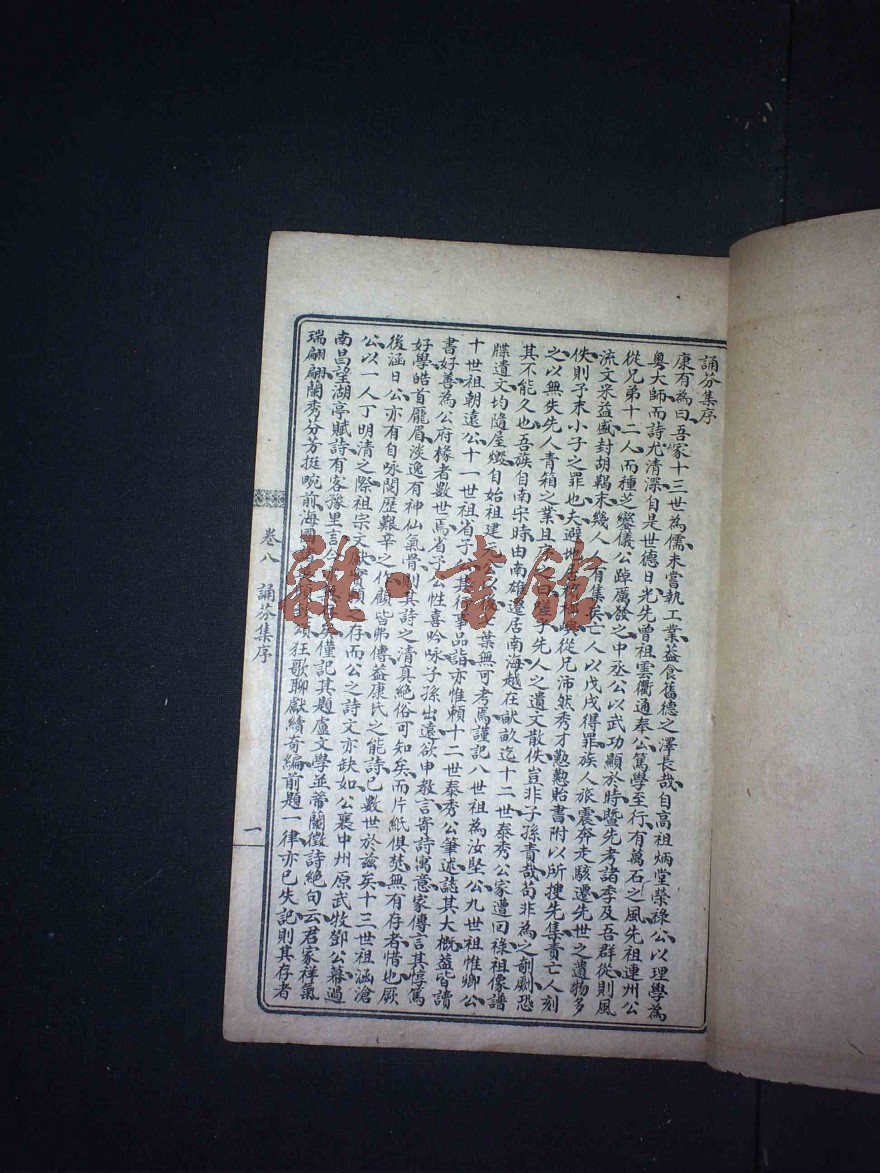 誦芬集序
康有為曰吾家十三世為儒未嘗執工業益食舊德之澤長哉自高祖炳堂榮祿公以理學為
粵大師而詩尤清深自是世德日光先曾祖雲衢通奉公篤學至行有萬石之風先祖連州公
從兄弟十二人而種芝鑾儀公踔厲發之中丞公以武功顯於時暨先考諸季及吾群從則風
流文采益盛封胡羯末幾人人有集矣亡人以戊戌得罪族人旅震奔走駭遷先世之遺物多
佚則予末小子之罪也夫避地從兄沛然秀才懃懃貽書附以所搜先集責亡人刻
之以無失先人青箱之業且先人之遺文散佚豈非子孫責哉苟非為之剞劂恐
其不能久也吾族自南宋時由南雄遷居南海越在畎畝迄十二世泰秀公家遭回祿祖像譜
牒遺文均隨屋燬自始祖建葉無可考焉謹記八世祖為汝堅公九世祖惟卿公
十世祖朝遠公十一世祖省予品詣亦惟賴十二世泰秀公筆述誌其大概益皆讀
書好善為公府椽者數世焉省予公性喜吟咏子孫出遠欲申教言寄詩寓意家傳言其惇篤
好學皓首龐眉淡逸有神仙氣骨則其詩之清真絕俗可知矣而片紙俱焚無有存者惜也厥
後涵日公亦有自咏閱歷艱辛之作顧皆弗傳益康氏之能詩已數世於茲矣十三世祖涵滄
公以一人丁明清之際祖宗文獻存而公之詩文亦缺如公襄中州原武牧鄧公幕過
南昌望湖亭賦詩有客豫里言矣僅記其題盧文學並蒂蘭徵詩絕句云君家祥氣
瑞翩翩蘭秀芬芳挺畹前海國頌狂歌聊獻續奇編前題一律亦已失記則其存者
卷八 誦芬集序
一
雜·書館